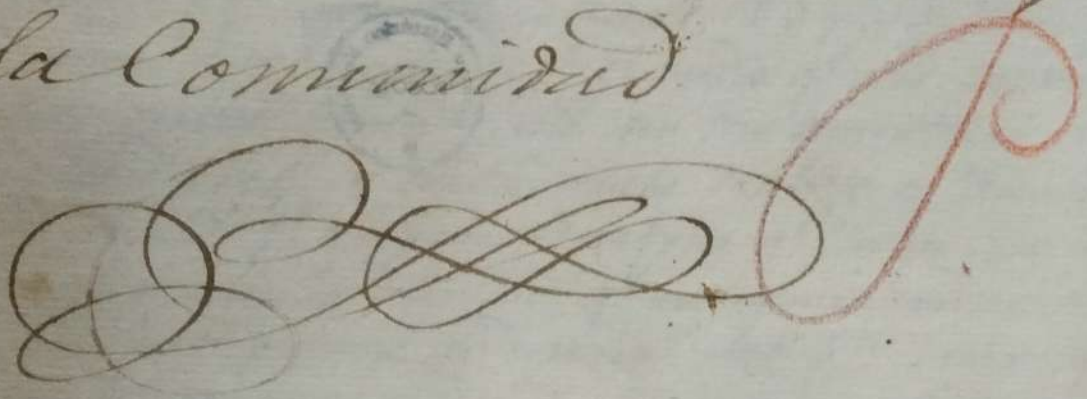 la Comunidad